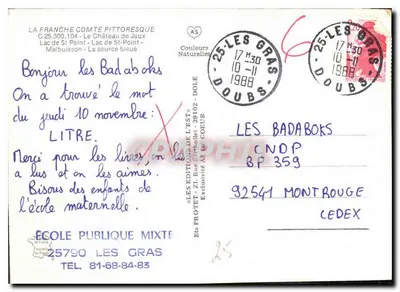 LA FRANCHE COMTE PITTORESQUE
C.25.300.104 - Le Château de Joux
Lac de St Point - Lac de St-Point -
Malbuisson - La source bleue
Bonjour les Badaboks
On a trouvé le mot
du jeudi 10 novembre:
LITRE.
Merci pour les livres, on les
a lus et on les aimes.
Bisous des enfants de
l'école maternelle.
ECOLE PUBLIQUE MIXTE
25790 LES GRAS
TEL. 81-68-84-83
AS
Couleurs
Naturelles
«LES EDITIONS DE L'EST»
Ets PROTET - 21, Rue 39102 - DOLE
Exclusivité AS de COEUR
25-LES GRAS
17H30
10-11
1988
DOUBS
25-LES GRAS
17H30
10-11
1988
DOUBS
LES BADABOKS
CNDP
BP 359
92541 MONTROUGE
CEDEX
25